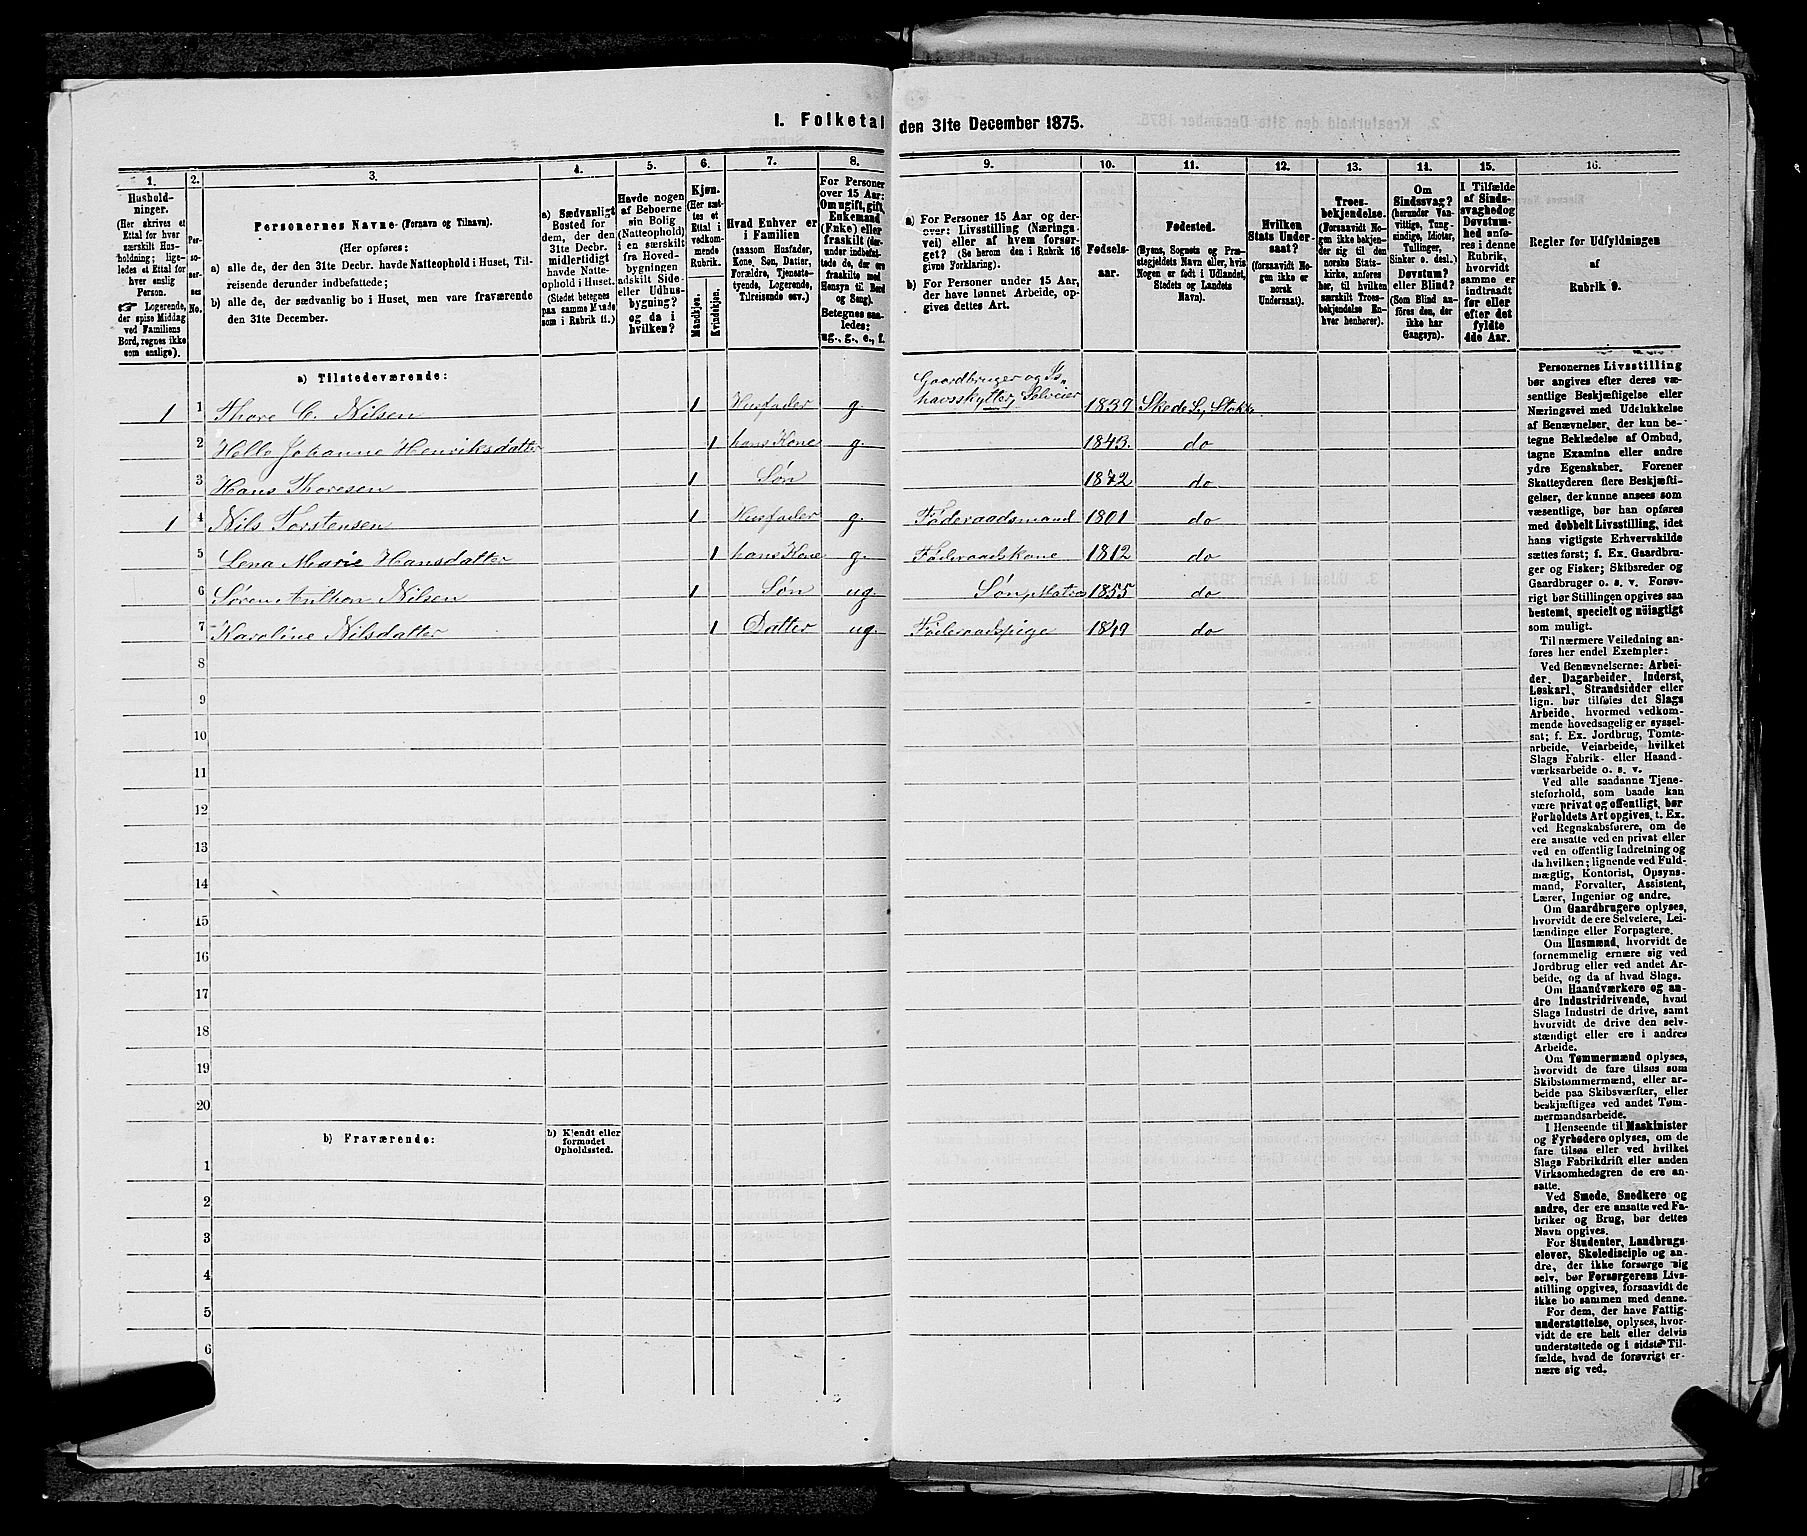 I. Folketal den 31te December 1875.
1. 2. 3. 4. 5. 6. 7. 8. 9. 10. 11. 12. 13. 14. 15. 16.
Husholdninger.
(Her skrives et
Ettal for hver
særskilt Husholdning; ligeledes
et Ettal for
hver enslig
Person.
Logerende,
der spise Middag
ved Familiens
Bord, regnes ikke
som enslige).
Personernes No.
Personernes Navne (Fornavn og Tilnavn).
(Her opføres:
a) alle de, der den 31te Decbr. havde Natteophold i Huset, Tilreisende
derunder indbefattede;
b) alle de, der sædvanlig bo i Huset, men vare fraværende
den 31te December.
a) Sædvanligt
Bosted for
dem, der den
31te Decbr.
midlertidigt
havde Natteophold
i Huset.
(Stedet betegnes
paa samme Maade
som i Rubrik 11.)
Havde nogen
af Beboerne
sin Bolig
(Natteophold)
i en særskilt
fra Hovedbygningen
adskilt Side-
eller Udhusbygning?
og da i
hvilken?
Kjøn.
(Her sættes
et
Ettal i
vedkommende
Rubrik.
Mandkjøn.
Kvindekjøn.
Hvad Enhver er
i Familien
(saasom Husfader,
Kone, Søn, Datter,
Forældre, Tjenestetyende,
Logerende,
Tilreisende osv.)
For Personer
over 15 Aar:
Om ugift, gift,
Enkemand
(Enke) eller
fraskilt (derunder
indbefattede
de, der ere
fraskilte med
Hensyn til Bord
og Seng).
Betegnes saaledes:
ug., g., e., f.
a) For Personer 15 Aar og derover:
Livsstilling (Næringsvei)
eller af hvem forsørget?
(Se herom den i Rubrik 16
givne Forklaring).
b) For Personer under 15 Aar,
der have lønnet Arbeide, opgives
dettes Art.
Fødselsaar.
Fødested.
(Byens, Sognets og Præstegjeldets
Navn eller, hvis
Nogen er født i Udlandet,
Stedets og Landets
Navn).
Hvilken
Stats Undersaat?
(forsaavidt Nogen
ikke er
norsk
Undersaat).
Troesbekjendelse.
(Forsaavidt Nogen
ikke bekjender
sig til den
norske Statskirke,
anføres
her, til hvilken
særskilt Troesbekjendelse
Enhver
henhører).
Om
Sindssvag?
(herunder Vanvittige,
Tungsindige,
Idioter,
Tullinger,
Sinker o. desl.)
Døvstum?
eller Blind?
(Som Blind anføres
den, der
ikke har
Gangsyn).
I Tilfælde
af Sindssvaghed
og
Døvstumhed
anføres
i denne
Rubrik,
hvorvidt
samme er
indtraadt
før eller
efter det
fyldte
4de Aar.
Regler for Udfyldningen
af
Rubrik 9.
a) Tilstedeværende:
1 1 Thore C. Nilsen 1 Husfader g. Gaardbruger og Ishavsskytter, Selveier 1839 Skede Sg Stokke
2 Helle Johanne Henriksdatter 1 hans Kone g. 1843. do
3 Hans Thoresen 1 Søn 1872 do
1 4 Nils Torstensen 1 Husfader g. Føderaadsmand 1801 do
5 Lena Marie Hansdatter 1 hans Kone g. Føderaadskone 1812 do
6 Søren Anthon Nilsen 1 Søn ug. Søn, Matros 1855 do
7 Karoline Nilsdatter 1 Datter ug. Føderaadspige 1849 do
8
9
10
11
12
13
14
15
16
17
18
19
20
b) Fraværende:
b) Kjendt eller
formodet
Opholdssted.
1
2
3
4
5
6
Personernes Livsstilling
bør angives efter deres væsentlige
Beskjæftigelse eller
Næringsvei med Udelukkelse
af Benævnelser, der kun betegne
Beklædelse af Ombud,
tagne Examina eller andre
ydre Egenskaber. Forener
Skatteyderen flere Beskjæftigelser,
der kunne ansees som
væsentlige, bør han opføres
med dobbelt Livsstilling, idet
hans vigtigste Erhvervskilde
sættes først; f. Ex. Gaardbruger
og Fisker; Skibsreder og
Gaardbruger o. s. v. Forøvrigt
bør Stillingen opgives saa
bestemt, specielt og nøiagtigt
som muligt.
Til nærmere Veiledning anføres
her endel Exempler:
Ved Benævnelserne: Arbeider,
Dagarbeider, Inderst,
Løskarl, Strandsidder eller
lign. bør tilføies det Slags
Arbeide, hvormed vedkommende
hovedsagelig er sysselsat;
f. Ex. Jordbrug, Tomtearbeide,
Veiarbeide, hvilket
Slags Fabrik- eller Haandværksarbeide
o. s. v.
Ved alle saadanne Tjenesteforhold,
som baade kan
være privat og offentligt, bør
Forholdets Art opgives, t. Ex.
ved Regnskabsførere, om de
ere ansatte ved en privat eller
ved en offentlig Indretning og
da hvilken; lignende ved Fuldmægtig,
Kontorist, Opsynsmand,
Forvalter, Assistent,
Lærer, Ingeniør og andre.
Om Gaardbrugere oplyses,
hvorvidt de ere Selveiere, Leilændinge
eller Forpagtere.
Om Husmænd, hvorvidt de
fornemmelig ernære sig ved
Jordbrug eller ved andet Arbeide,
og da af hvad Slags.
Om Haandværkere og andre
Industridrivende, hvad
Slags Industri de drive, samt
hvorvidt de drive den selvstændigt
eller ere i andres
Arbeide.
Om Tømmermænd oplyses,
hvorvidt de fare tilsøs som
Skibstømmermænd, eller arbeide
paa Skibsværfter, eller
beskjæftiges ved andet Tømmermandsarbeide.
I Henseende til Maskinister
og Fyrbødere oplyses, om de
fare tilsøs eller ved hvilket
Slags Fabrikdrift eller anden
Virksomhedsgren de ere ansatte.
Ved Smede, Snedkere og
andre, der ere ansatte ved Fabriker
og Brug, bør dettes
Navn opgives.
For Studenter, Landbrugselever,
Skoledisciple og andre,
der ikke forsørge sig
selv, bør Forsørgerens Livsstilling
opgives, forsaavidt de
ikke bo sammen med denne.
For dem, der have Fattigunderstøttelse,
oplyses, hvorvidt
de ere helt eller delvis
understøttede og i sidste Tilfælde,
hvad de forøvrigt ernære
sig ved.